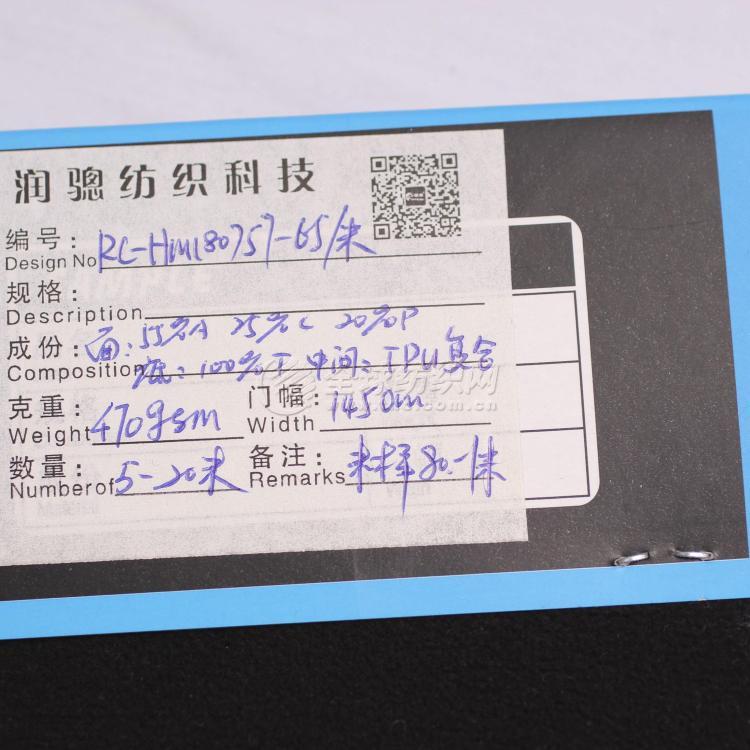 润骢纺织科技
编号: RC-HM180757-65/米
Design No
规格:
Description
成份: 面: 55%A 25%C 20%P
Composition 底: 100%T 中间: TPU复合
克重: 470gsm 门幅: 145cm
Weight Width
数量: 5-20米 备注: 米样80.-1米
Numberof Remarks
全球纺织网